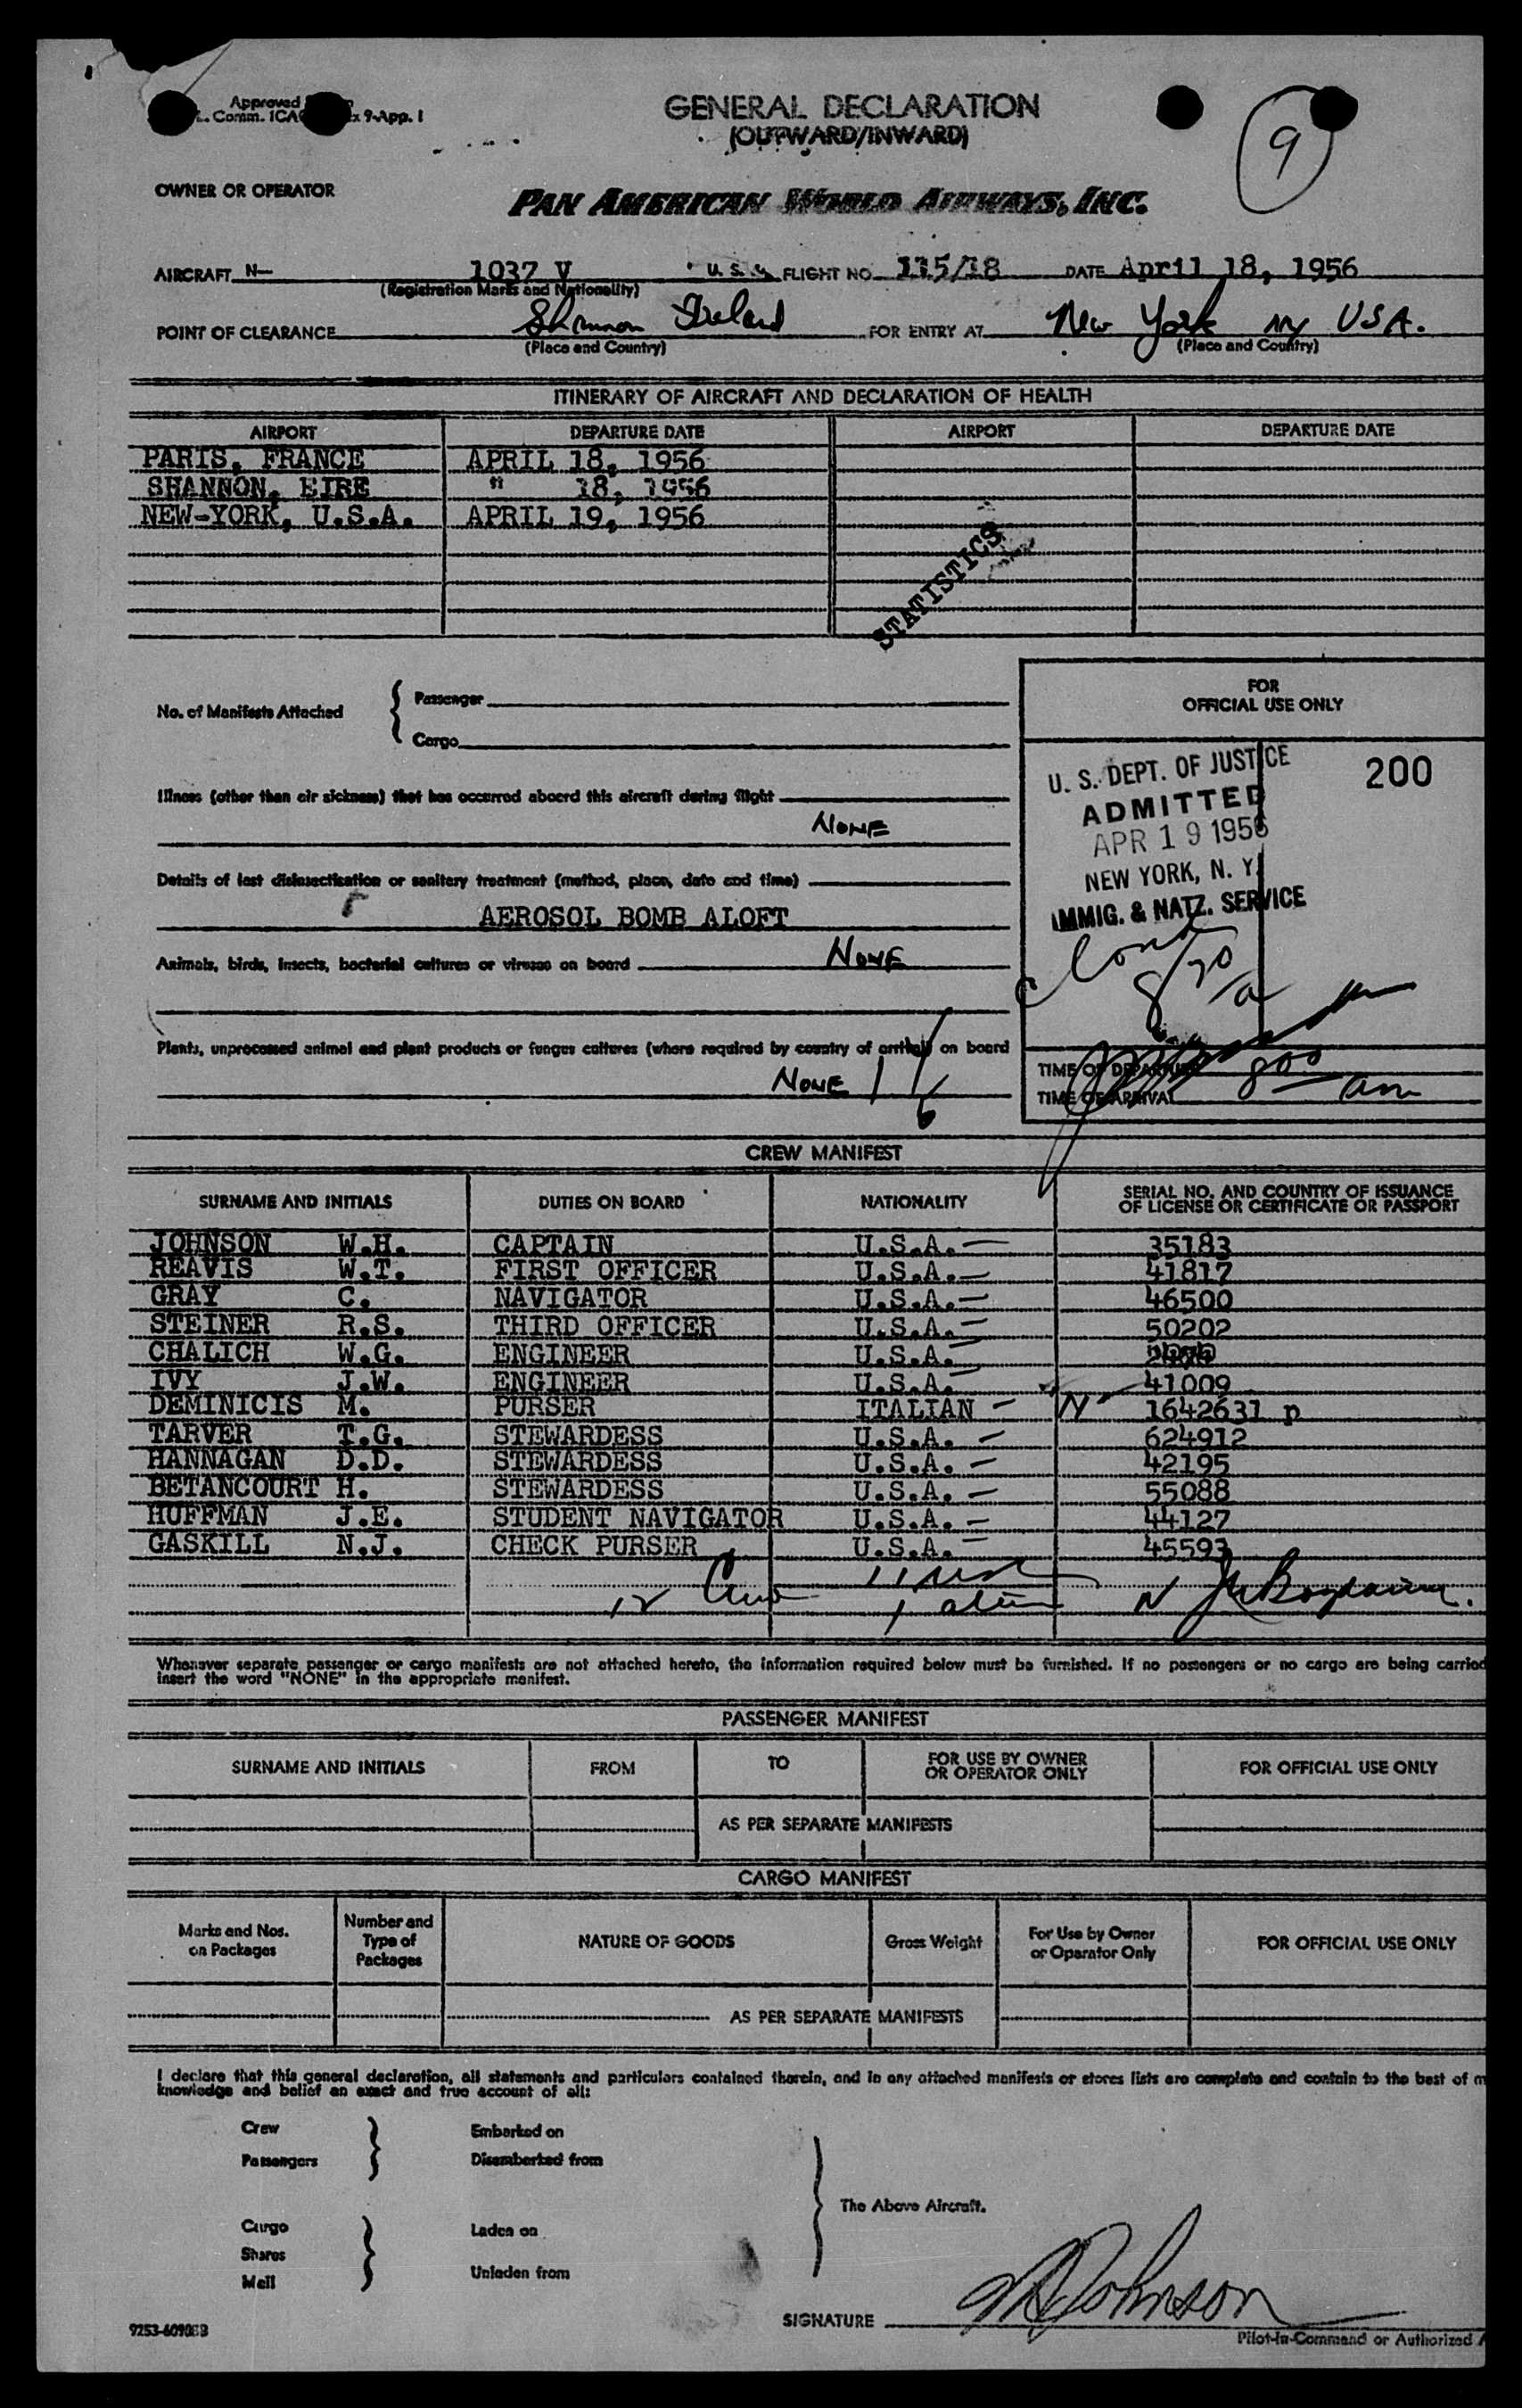 Approved
L. Comm. ICA x 9-App. 1
GENERAL DECLARATION
(OUTWARD/INWARD)
9
OWNER OR OPERATOR
PAN AMERICAN WORLD AIRWAYS, INC.
AIRCRAFT N— 1037 V U. S. FLIGHT NO. 115/18 DATE April 18, 1956
(Registration Marks and Nationality)
POINT OF CLEARANCE Shannon Ireland FOR ENTRY AT New York NY USA.
(Place and Country) (Place and Country)
ITINERARY OF AIRCRAFT AND DECLARATION OF HEALTH
AIRPORT DEPARTURE DATE AIRPORT DEPARTURE DATE
PARIS, FRANCE APRIL 18, 1956
SHANNON, EIRE " 18, 1956
NEW-YORK, U.S.A. APRIL 19, 1956
STATISTICS
No. of Manifests Attached
Passenger
Cargo
FOR
OFFICIAL USE ONLY
U. S. DEPT. OF JUSTICE
ADMITTED
APR 19 1956
NEW YORK, N. Y.
IMMIG. & NATZ. SERVICE
200
Illness (other than air sickness) that has occurred aboard this aircraft during flight
NONE
Details of last disinsectisation or sanitary treatment (method, place, date and time)
AEROSOL BOMB ALOFT
Animals, birds, insects, bacterial cultures or viruses on board NONE
Plants, unprocessed animal and plant products or fungus cultures (where required by country of arrival) on board
NONE
TIME OF DEPARTURE
TIME OF ARRIVAL 800 am
CREW MANIFEST
SURNAME AND INITIALS DUTIES ON BOARD NATIONALITY SERIAL NO. AND COUNTRY OF ISSUANCE
OF LICENSE OR CERTIFICATE OR PASSPORT
JOHNSON W.H. CAPTAIN U.S.A. — 35183
REAVIS W.T. FIRST OFFICER U.S.A. — 41817
GRAY C. NAVIGATOR U.S.A. — 46500
STEINER R.S. THIRD OFFICER U.S.A. — 50202
CHALICH W.G. ENGINEER U.S.A. —
IVY J.W. ENGINEER U.S.A. — 41009
DEMINICIS M. PURSER ITALIAN — N 1642631 p
TARVER T.G. STEWARDESS U.S.A. — 624912
HANNAGAN D.D. STEWARDESS U.S.A. — 42195
BETANCOURT H. STEWARDESS U.S.A. — 55088
HUFFMAN J.E. STUDENT NAVIGATOR U.S.A. — 44127
GASKILL N.J. CHECK PURSER U.S.A. — 45593
12 Crew 11
1 alien N
Whenever separate passenger or cargo manifests are not attached hereto, the information required below must be furnished. If no passengers or no cargo are being carried
insert the word "NONE" in the appropriate manifest.
PASSENGER MANIFEST
SURNAME AND INITIALS FROM TO FOR USE BY OWNER
OR OPERATOR ONLY FOR OFFICIAL USE ONLY
AS PER SEPARATE MANIFESTS
CARGO MANIFEST
Marks and Nos.
on Packages
Number and
Type of
Packages
NATURE OF GOODS
Gross Weight
For Use by Owner
or Operator Only
FOR OFFICIAL USE ONLY
AS PER SEPARATE MANIFESTS
I declare that this general declaration, all statements and particulars contained therein, and in any attached manifests or stores lists are complete and contain to the best of m
knowledge and belief an exact and true account of all:
Crew Embarked on
Passengers Disembarked from
The Above Aircraft.
Cargo Laden on
Shares
Mail Unladen from
SIGNATURE WH Johnson
9253-60905B
Pilot-in-Command or Authorized A